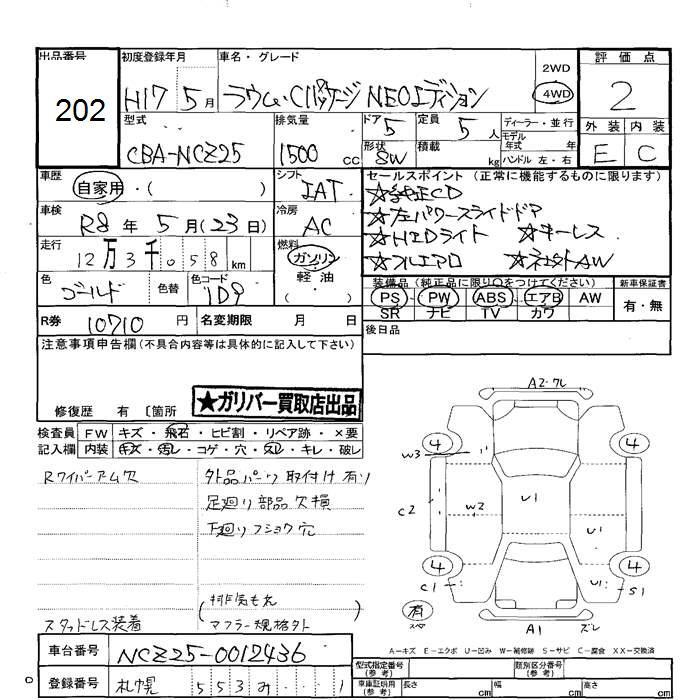 出品番号
202
初度登録年月
H17 5月
車名・グレード
ラウム Cパッケージ NEOエディション
2WD
4WD
評価点
2
外装 内装
E C
型式
CBA-NCZ25
排気量
1500 cc
ドア
5
定員
5 人
ディーラー・並行
モデル
年式 年
ハンドル 左・右
形状
SW
積載
kg
車歴
自家用・( )
シフト
IAT
セールスポイント(正常に機能するものに限ります)
☆純正CD
☆左パワースライドドア
☆HIDライト ☆キーレス
☆フルエアロ ☆ネオ外AW
車検
R8 年 5 月(23 日)
冷房
AC
走行
12万3千058 km
燃料
ガソリン
軽油
( )
色
ゴールド
色替
色コード
1D9
装備品(純正品に限り○をつけてください)
PS PW ABS エアB AW
SR ナビ TV カワ
新車保証書
有・無
R券 10710 円
名変期限 月 日
後日品
注意事項申告欄(不具合内容等は具体的に記入して下さい)
修復歴 有 〔箇所
★ガリバー買取店出品
検査員 FW キズ・飛石・ヒビ割・リペア跡・×要
記入欄 内装 キズ・汚レ・コゲ・穴・スレ・キレ・破レ
Rワイパーアーム欠
外品パーツ取付け有り
足廻り部品欠損
下廻りフショク穴
(排気もれ
マフラー規格外
スタッドレス装着
A2・ワレ
4
4
W3
C2
W2
U1
U1
4
4
C1
U1
S1
有
スペ
A1
ズレ
A-キズ E-エクボ U-凹み W-補修跡 S-サビ C-腐食 XX-交換済
車台番号 NCZ25-0012436
登録番号 札幌 553 み 1
型式指定番号
(参考)
類別区分番号
(参考)
車庫証明用
(参考)
長さ cm
幅 cm
高さ cm